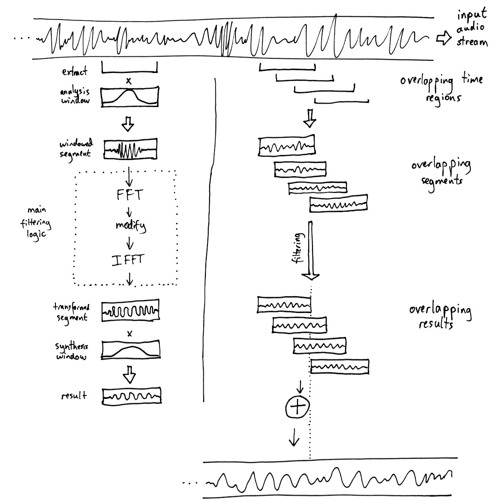 input
audio
stream
extract
x
analysis
window
windowed
segment
main
filtering
logic
FFT
modify
IFFT
transformed
segment
x
synthesis
window
result
overlapping time
regions
overlapping
segments
filtering
overlapping
results
+